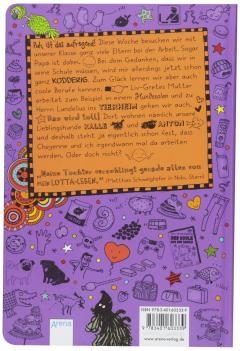 Puh, ist das aufregend! Diese Woche besuchen wir mit
unserer Klasse ganz viele Eltern bei der Arbeit. Sogar
Papa ist dabei. Bei dem Gedanken, dass wir in
seine Schule müssen, wird mir allerdings jetzt schon
ganz KODDERIG. Zum Glück lernen wir aber auch
coole Berufe kennen. Liv-Gretes Mutter
arbeitet zum Beispiel in einem und zu
Herrn Lundelius ins TIERHEIM gehen wir auch.
Das wird toll! Dort wohnen nämlich unsere
Lieblingshunde KALLE und
und deshalb steht ja eigentlich schon fest, dass
Cheyenne und ich irgendwann mal da arbeiten
werden. Oder doch nicht?
„Meine Tochter verschlingt gerade alles von
MEIN LOTTA-LEBEN." (Matthias Schweighöfer in Nido, Stern)
DIE SCHULE
Arena
ISBN 978-3-401-60333-9
9 783401 603339
www.arena-verlag.de